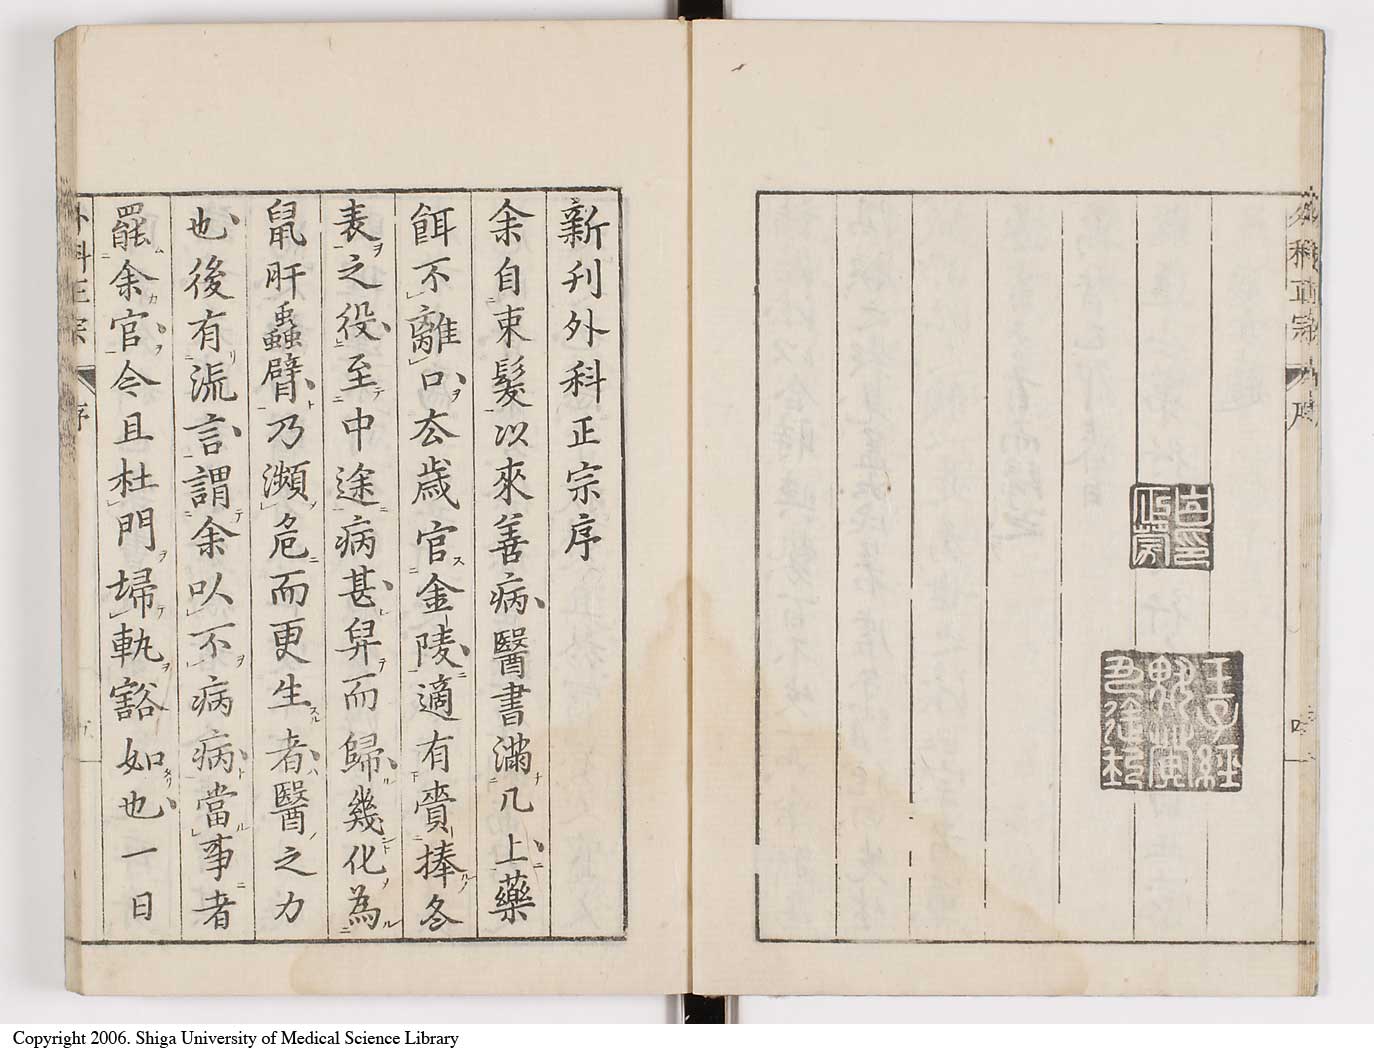 新刊外科正宗序
余自束髮以來善病醫書滿几上藥
餌不離口去歲官金陵適有賫捧冬
表之役至中途病甚舁而歸幾化為
鼠肝蟲臂乃瀕危而更生者醫之力
也後有流言謂余以不病病當事者
罷余官今且杜門埽軌豁如也一日
外科正宗 序
Copyright 2006. Shiga University of Medical Science Library